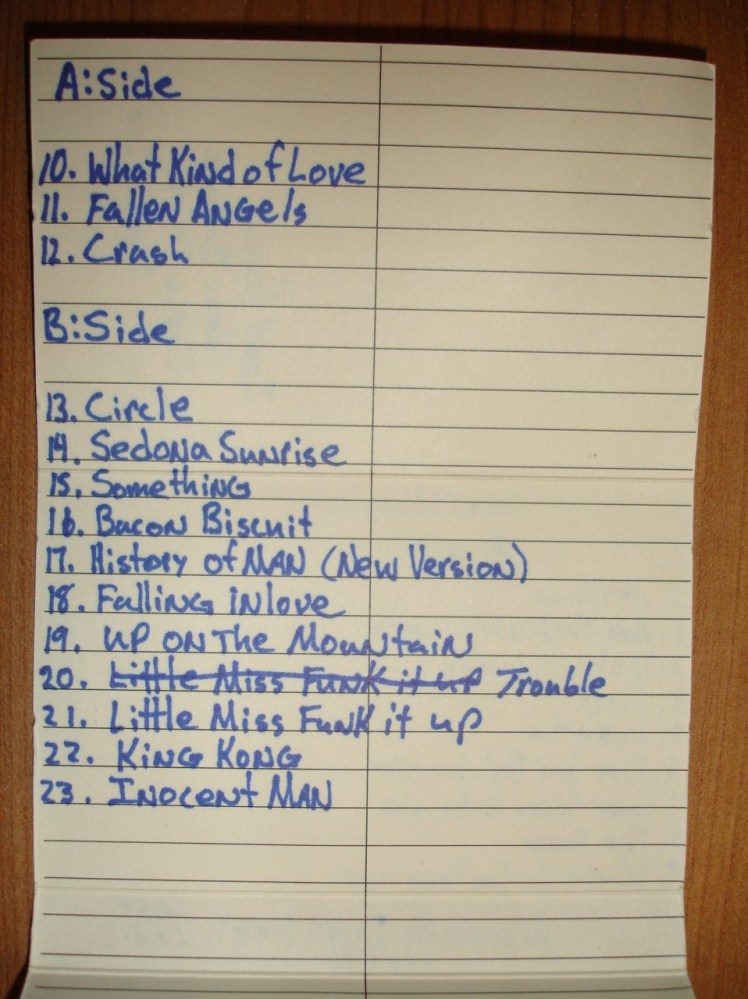 A:Side
10. What Kind of Love
11. Fallen Angels
12. Crash
B:Side
13. Circle
14. Sedona Sunrise
15. Something
16. Bacon Biscuit
17. History of MAN (New Version)
18. Falling in love
19. UP ON The Mountain
20. ~~Little Miss Funk it up~~ Trouble
21. Little Miss Funk it up
22. King Kong
23. Inocent MAN